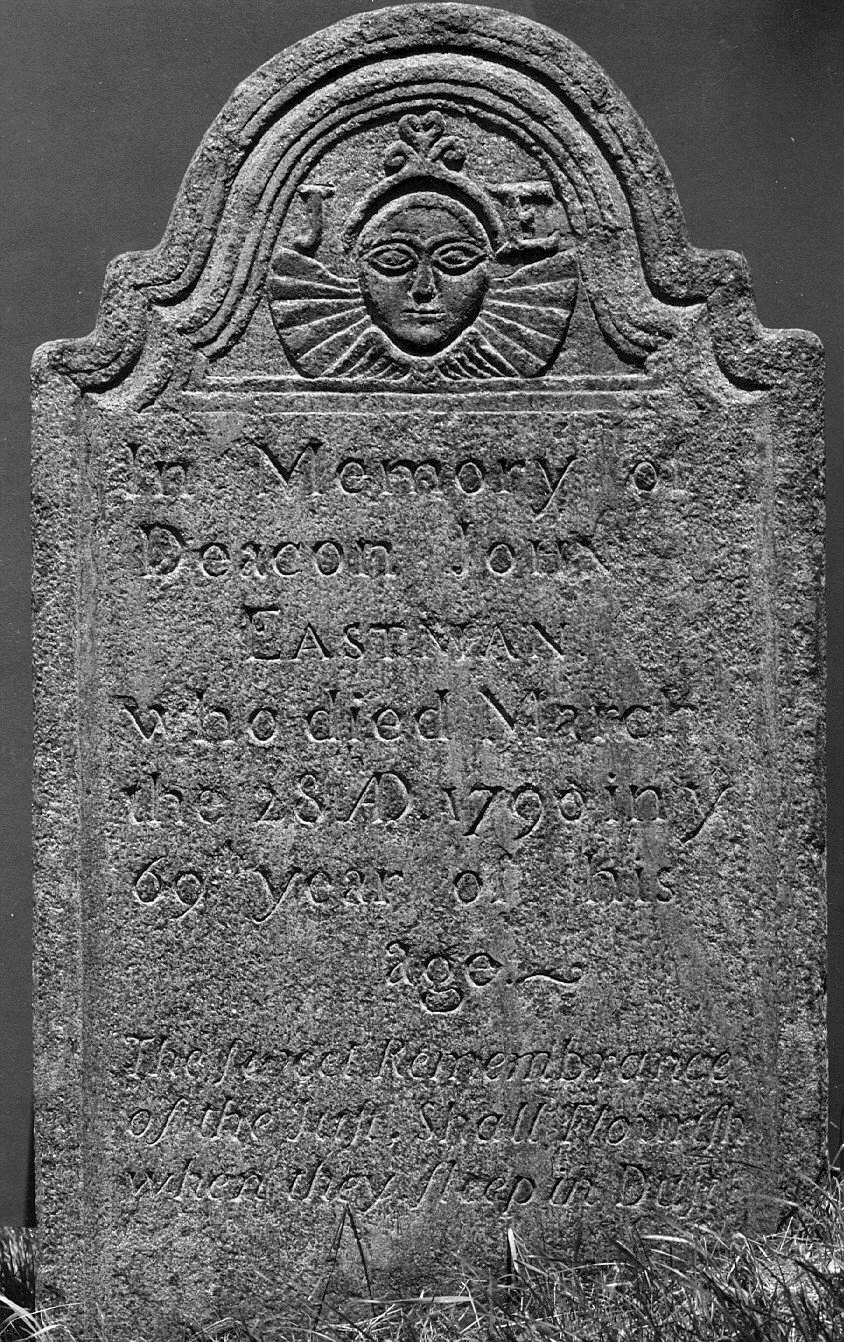 J E
In Memory of
Deacon John
EASTMAN
who died March
the 28 AD. 1790 in y
69 year of his
age.
The ſweet Remembrance
of the Juſt. Shall Flouriſh.
when they ſleep in Duſt